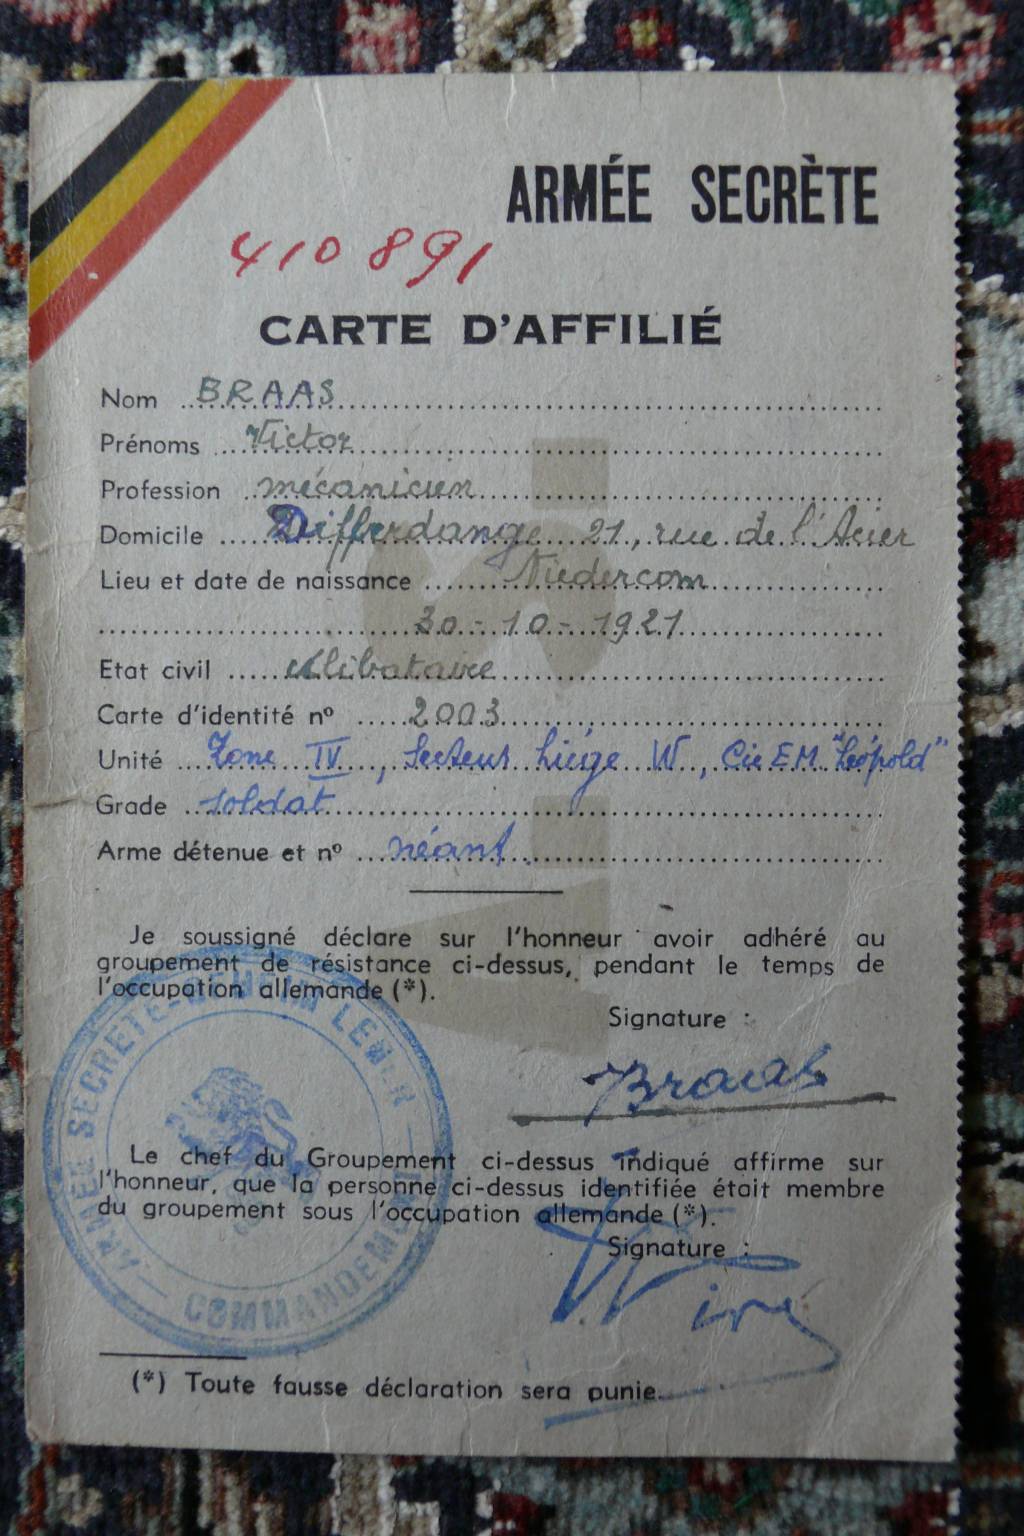 ARMÉE SECRÈTE
410891
CARTE D'AFFILIÉ
Nom BRAAS
Prénoms Victor
Profession mécanicien
Domicile Differdange 21, rue de l'Acier
Lieu et date de naissance Niedercorn
30-10-1921
Etat civil célibataire
Carte d'identité nº 2003
Unité Zone IV, Secteur Liège W, Cie EM "Léopold"
Grade soldat
Arme détenue et nº néant
Je soussigné déclare sur l'honneur avoir adhéré au
groupement de résistance ci-dessus, pendant le temps de
l'occupation allemande (*).
Signature :
Braas
Le chef du Groupement ci-dessus indiqué affirme sur
l'honneur, que la personne ci-dessus identifiée était membre
du groupement sous l'occupation allemande (*).
Signature :
ARMÉE SECRÈTE
COMMANDEMENT
(*) Toute fausse déclaration sera punie.